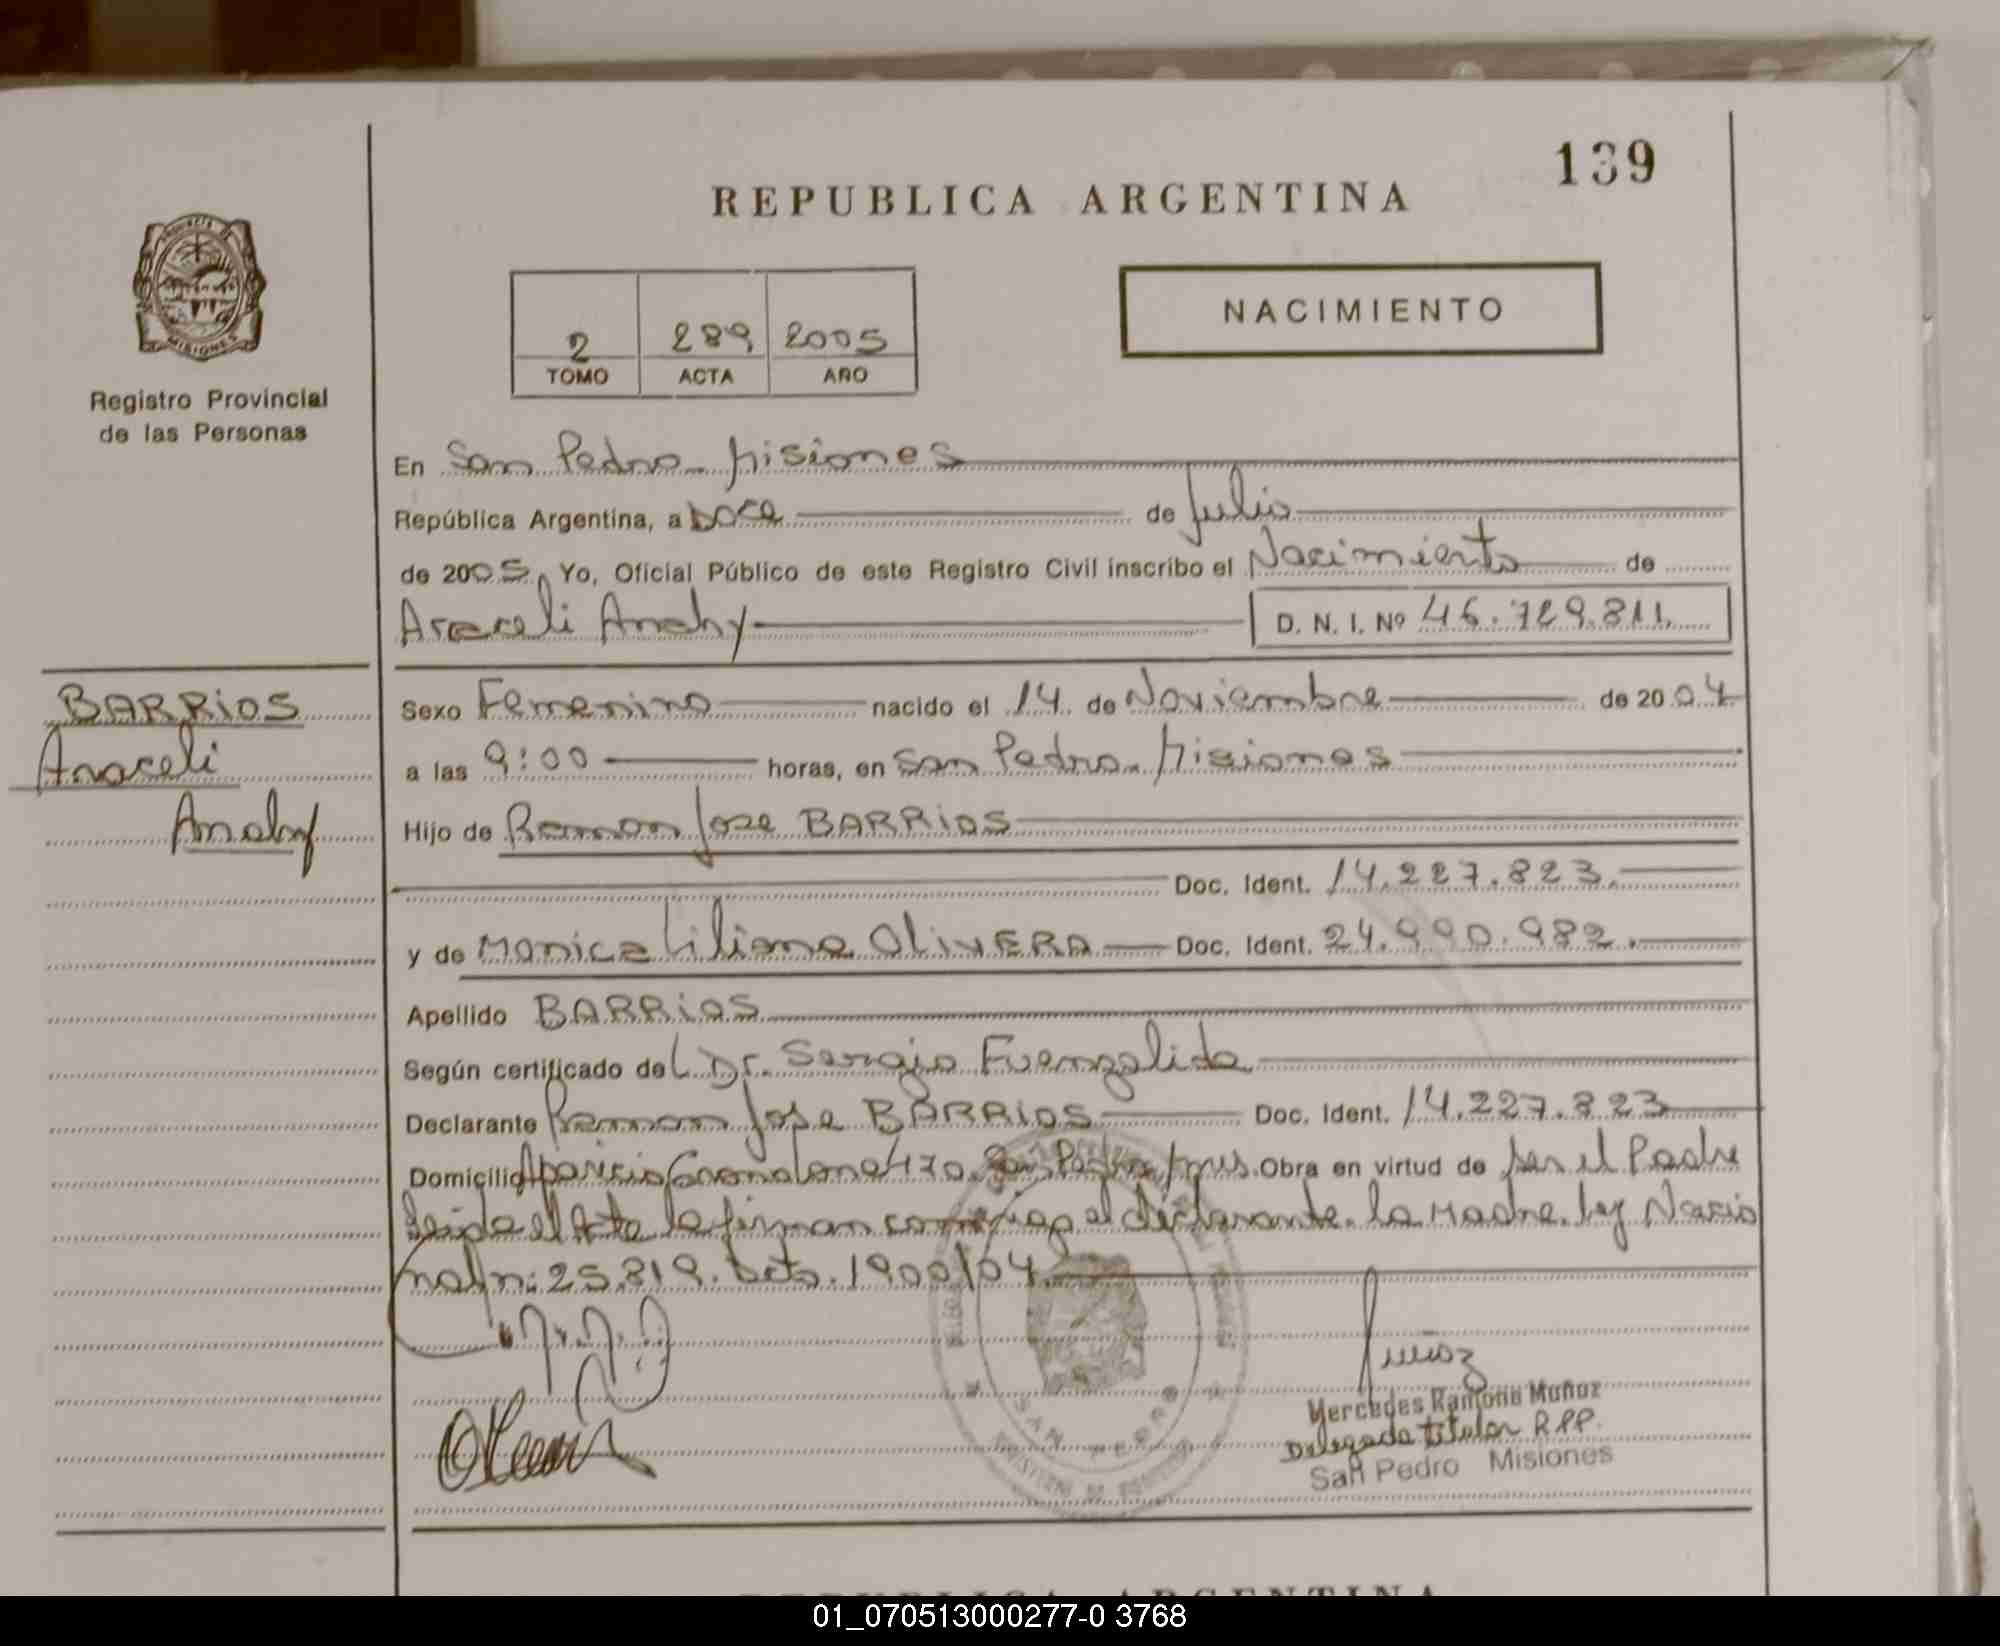 139
REPUBLICA ARGENTINA
PROVINCIA DE
MISIONES
Registro Provincial
de las Personas
NACIMIENTO
2 289 2005
TOMO ACTA AÑO
En San Pedro Misiones
República Argentina, a Doce de Julio
de 2005, Yo, Oficial Público de este Registro Civil inscribo el Nacimiento de
Araceli Anahy D. N. I. Nº 46.729.811.
BARRIOS
Araceli
Anahy
Sexo Femenino nacido el 14 de Noviembre de 2004
a las 9:00 horas, en San Pedro. Misiones
Hijo de Ramon Jose BARRIOS
Doc. Ident. 14.227.823.
y de Monica Liliana OLIVERA Doc. Ident. 24.990.982.
Apellido BARRIOS
Según certificado del Dr. Sergio Fuenzalida
Declarante Ramon Jose BARRIOS Doc. Ident. 14.227.823
Domicilio Aparicio 470. San Pedro Mns. Obra en virtud de ser el Padre
Leida el Acta la firman conmigo el declarante. la Madre. ley Nacio
nal n: 25.819. Dcto. 1900/04.
Muñoz
Mercedes Ramona Muñoz
Delegada titular RPP.
San Pedro Misiones
SAN PEDRO
MINISTERIO DE GOBIERNO
REPUBLICA ARGENTINA
01_070513000277-0 3768